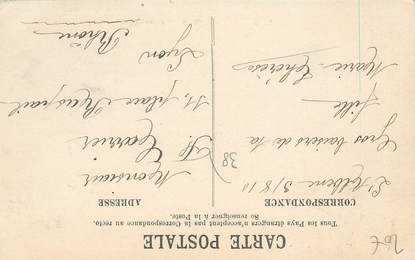 CARTE POSTALE
Tous les Pays étrangers n'acceptent pas la Correspondance au recto.
Se renseigner à la Poste.
CORRESPONDANCE
3/8/10
Gros baisers de ta
fille
Marie-Thérèse
38
ADRESSE
Monsieur
11, place Raspail
Lyon
Rhône
20€